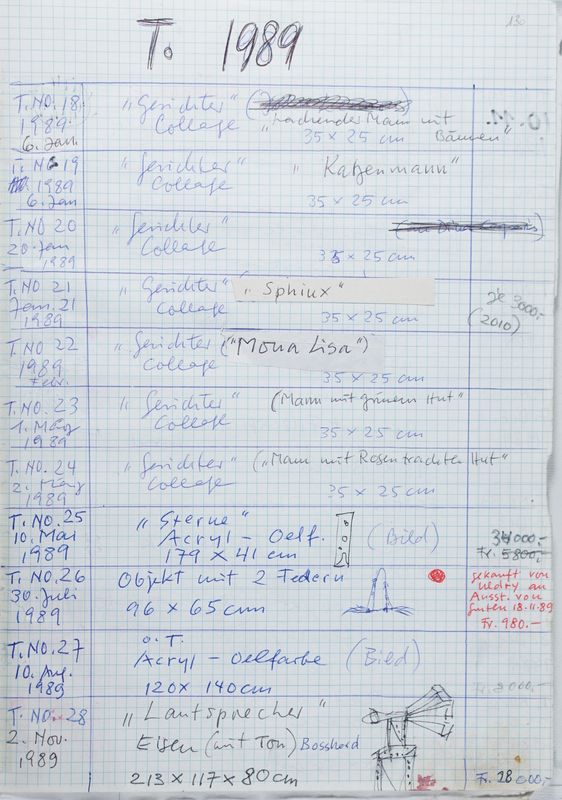 130
T. 1989
T. NO. 18. „Gerichter"
1989 Collage „Lachender Mann mit
6. Jan 35 x 25 cm Bäumen"
T. NO 19 „Gerichter" „Katzenmann"
1989 Collage
6. Jan 35 x 25 cm
T. NO 20 „Gerichter"
20. Jan Collage 35 x 25 cm
1989
T. NO 21 „Gerichter" („Sphinx"
Jan. 21 Collage 35 x 25 cm je 3000.-
1989 (2010)
T. NO 22 „Gerichter" („Mona Lisa")
1989 Collage
Febr. 35 x 25 cm
T. NO. 23 „Gerichter" (Mann mit grünem Hut"
1. März Collage
1989 35 x 25 cm
T. NO. 24 „Gerichter" („Mann mit Rosentrachten Hut"
2. März Collage
1989 35 x 25 cm
T. NO. 25 „Sterne"
10. Mai Acryl - Oelf. (Bild) 34000.-
1989 179 x 41 cm Fr. 5800.-
T. NO. 26 Objekt mit 2 Federn gekauft von
30. Juli Uldry an
1989 96 x 65 cm Ausst. von
18.11.89
Fr. 980.-
T. NO. 27 o.T.
10. Aug. Acryl - Oelfarbe (Bild)
1989 120 x 140 cm
T. NO. 28 „Lautsprecher"
2. Nov. Eisen (mit Ton) Bosshard
1989 213 x 117 x 80 cm Fr. 28000.-